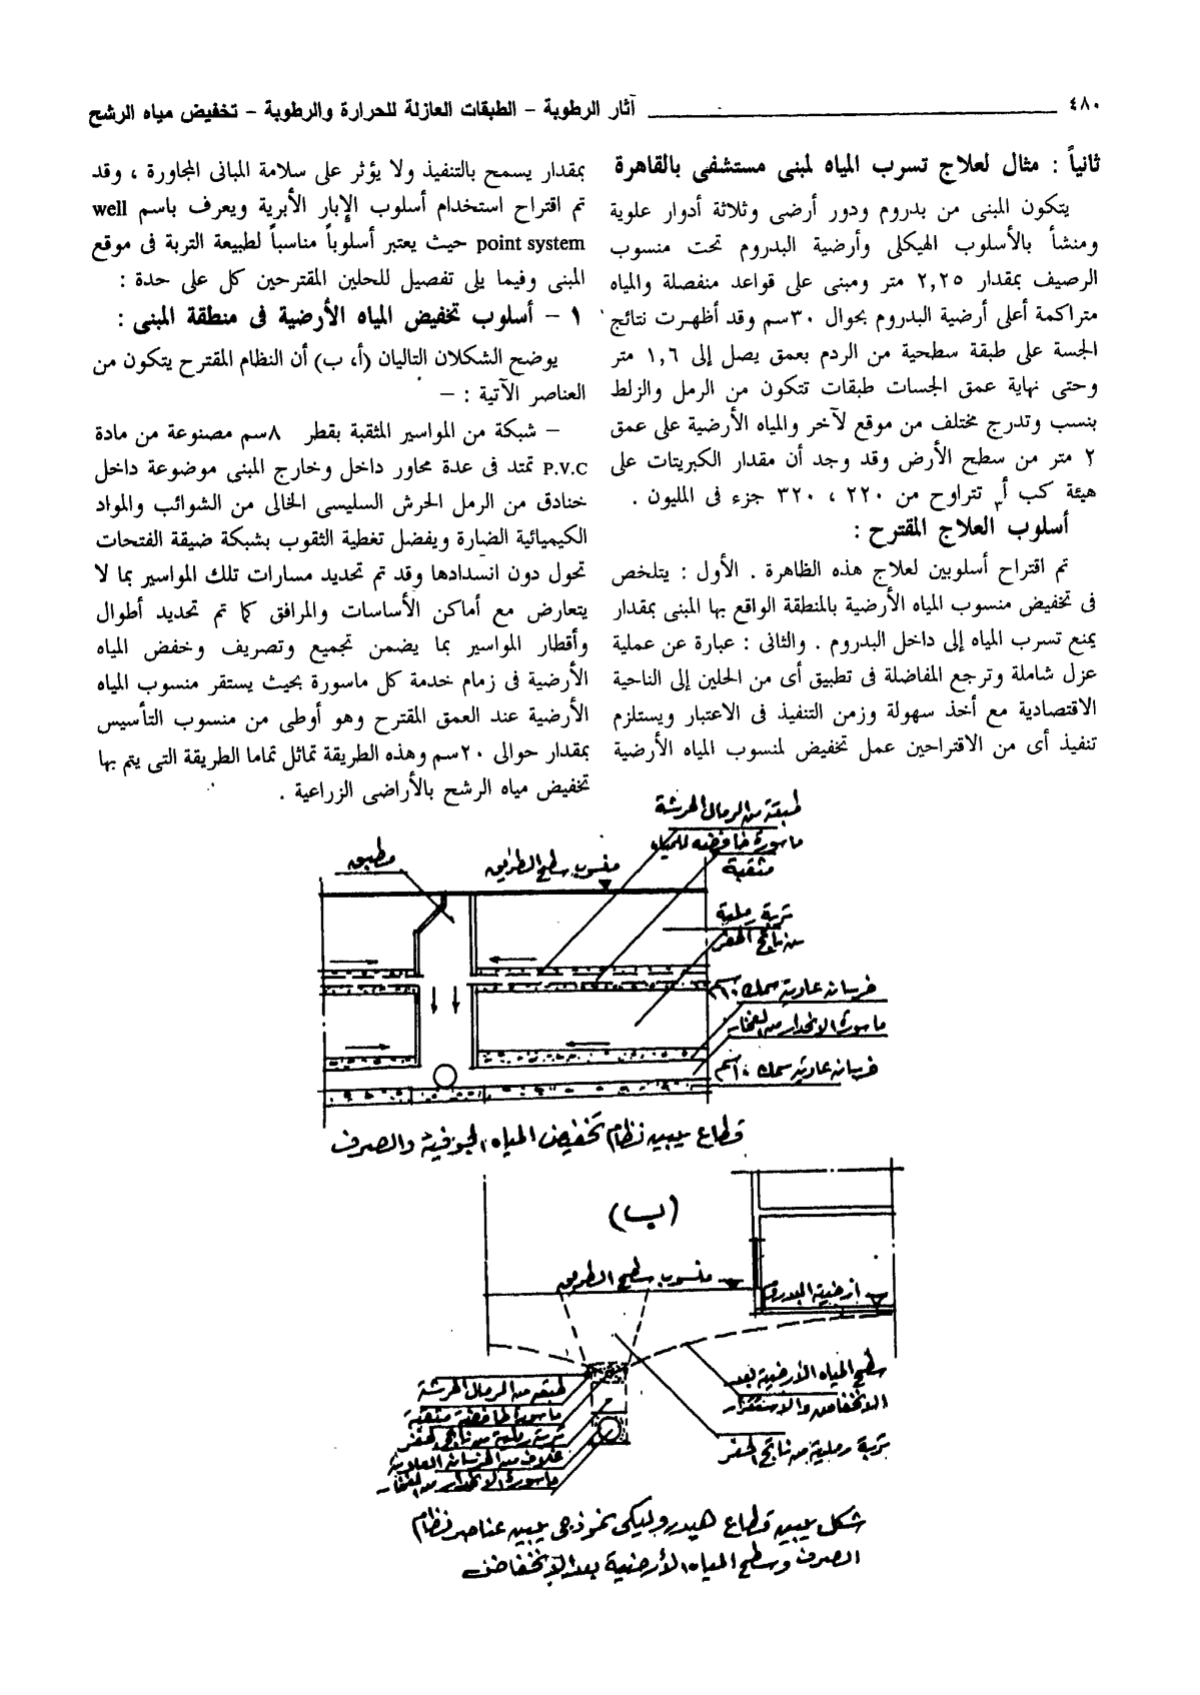 ٤٨٠ آثار الرطوبة – الطبقات العازلة للحرارة والرطوبة – تخفيض مياه الرشح
ثانياً : مثال لعلاج تسرب المياه لمبنى مستشفى بالقاهرة
يتكون المبنى من بدروم ودور أرضى وثلاثة أدوار علوية
ومنشأ بالأسلوب الهيكلى وأرضية البدروم تحت منسوب
الرصيف بمقدار ٢,٢٥ متر ومبنى على قواعد منفصلة والمياه
متراكمة أعلى أرضية البدروم بحوال ٣٠سم وقد أظهرت نتائج
الجسة على طبقة سطحية من الردم بعمق يصل إلى ١,٦ متر
وحتى نهاية عمق الجسات طبقات تتكون من الرمل والزلط
بنسب وتدرج مختلف من موقع لآخر والمياه الأرضية على عمق
٢ متر من سطح الأرض وقد وجد أن مقدار الكبريتات على
هيئة كب أ٣ تتراوح من ٢٢٠ ، ٣٢٠ جزء فى المليون .
أسلوب العلاج المقترح :
تم اقتراح أسلوبين لعلاج هذه الظاهرة . الأول : يتلخص
فى تخفيض منسوب المياه الأرضية بالمنطقة الواقع بها المبنى بمقدار
يمنع تسرب المياه إلى داخل البدروم . والثانى : عبارة عن عملية
عزل شاملة وترجع المفاضلة فى تطبيق أى من الحلين إلى الناحية
الاقتصادية مع أخذ سهولة وزمن التنفيذ فى الاعتبار ويستلزم
تنفيذ أى من الاقتراحين عمل تخفيض لمنسوب المياه الأرضية
بمقدار يسمح بالتنفيذ ولا يؤثر على سلامة المبانى المجاورة ، وقد
تم اقتراح استخدام أسلوب الإبار الأبرية ويعرف باسم well
point system حيث يعتبر أسلوباً مناسباً لطبيعة التربة فى موقع
المبنى وفيما يلى تفصيل للحلين المقترحين كل على حدة :
١ – أسلوب تخفيض المياه الأرضية فى منطقة المبنى :
يوضح الشكلان التاليان (أ، ب) أن النظام المقترح يتكون من
العناصر الآتية : –
– شبكة من المواسير المثقبة بقطر ٨سم مصنوعة من مادة
P.V.C تمتد فى عدة محاور داخل وخارج المبنى موضوعة داخل
خنادق من الرمل الحرش السليسى الخالى من الشوائب والمواد
الكيميائية الضارة ويفضل تغطية الثقوب بشبكة ضيقة الفتحات
تحول دون انسدادها وقد تم تحديد مسارات تلك المواسير بما لا
يتعارض مع أماكن الأساسات والمرافق كما تم تحديد أطوال
وأقطار المواسير بما يضمن تجميع وتصريف وخفض المياه
الأرضية فى زمام خدمة كل ماسورة بحيث يستقر منسوب المياه
الأرضية عند العمق المقترح وهو أوطى من منسوب التأسيس
بمقدار حوالى ٢٠سم وهذه الطريقة تماثل تماما الطريقة التى يتم بها
تخفيض مياه الرشح بالأراضى الزراعية .
طبقة من الرمال الحرشة
ماسورة خافضه للمياه
مثقبة
مطبق
منسوب سطح الطريق
تربة رملية
من ناتج الحفر
خرسانه عادية سمك ١٠سم
ماسورة الانحدار من الفخار
خرسانه عادية سمك ١٠سم
قطاع يبين نظام تخفيض المياه الجوفية والصرف
(ب)
منسوب سطح الطريق
أرضية البدروم
سطح المياه الأرضية بعد
الانخفاض والاستقرار
تربة رملية من ناتج الحفر
طبقه من الرمال الحرشة
ماسورة خافضة مثقبة
تربة رملية من ناتج الحفر
غلاف من الخرسانه العادية
ماسورة الانحدار من الفخار
شكل يبين قطاع هيدروليكى نموذجى يبين عناصر نظام
الصرف وسطح المياه الأرضية بعد الإنخفاض